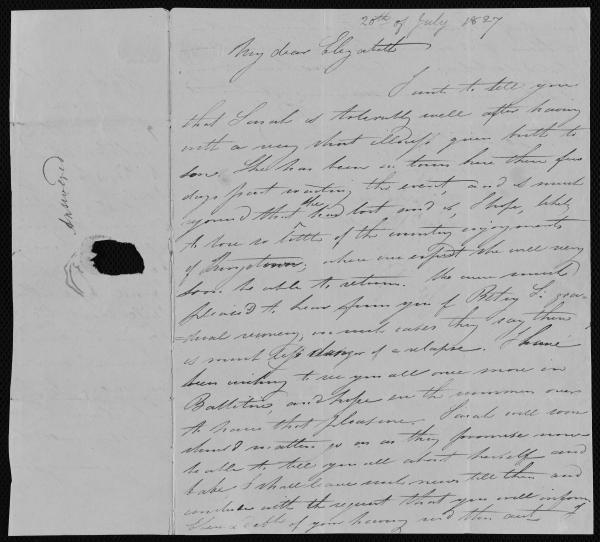 20th of July 1827
My dear Elizabeth
I write to tell you
that Sarah is tolerably well after having
with a very short illness given birth to
son. She has been in town here these few
days past waiting the event, and is much
rejoiced that she had lost and is, I hope, likely
to lose so little of the country enjoyments
of ; where we expect she will very
soon be able to return. We were much
pleased to hear from you of Betsy L. grad
=ual recovery, in such cases they say there
is much less danger of a relapse. I have
been wishing to see you all once more in
and hope in the summer over
to have that pleasure. Sarah will soon
should matters go on as they promise now
be able to tell you all about herself and
babe I shall leave such news till then and
conclude with the request that you will inform
of your having and then
answered